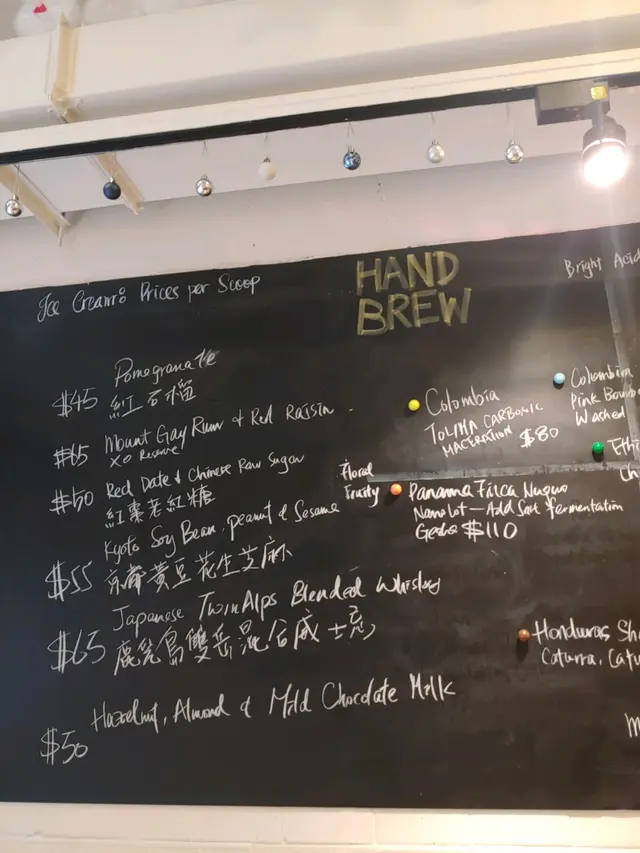 Ice Cream: Prices per Scoop
$45 Pomegranate
紅石榴
$65 Mount Gay Rum & Red Raisin
XO Reserve
$50 Red Date & Chinese Raw Sugar
紅棗老紅糖
Kyoto Soy Bean, peanut & Sesame
$55 京都黃豆花生芝麻
Japanese TwinAlps Blended Whisky
$65 鹿兒島雙岳混合威士忌
$50 Hazelnut, Almond & Mild Chocolate Milk
HAND
BREW
Bright Acid
Colombia
TOLIMA CARBONIC
MACERATION $80
Colombia
Pink Bourbo
Washed
Ethi
Ch
Floral
Fruity
Panama Finca Nuguo
Geisha $110
Honduras Sh
Caturra, Catu